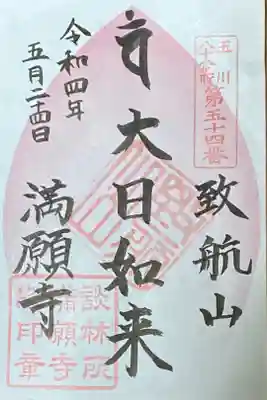 玉川
八十八ヶ所
第五十四番
致航山
大日如来
満願寺
令和四年
五月二十四日
談林所
満願寺
印章